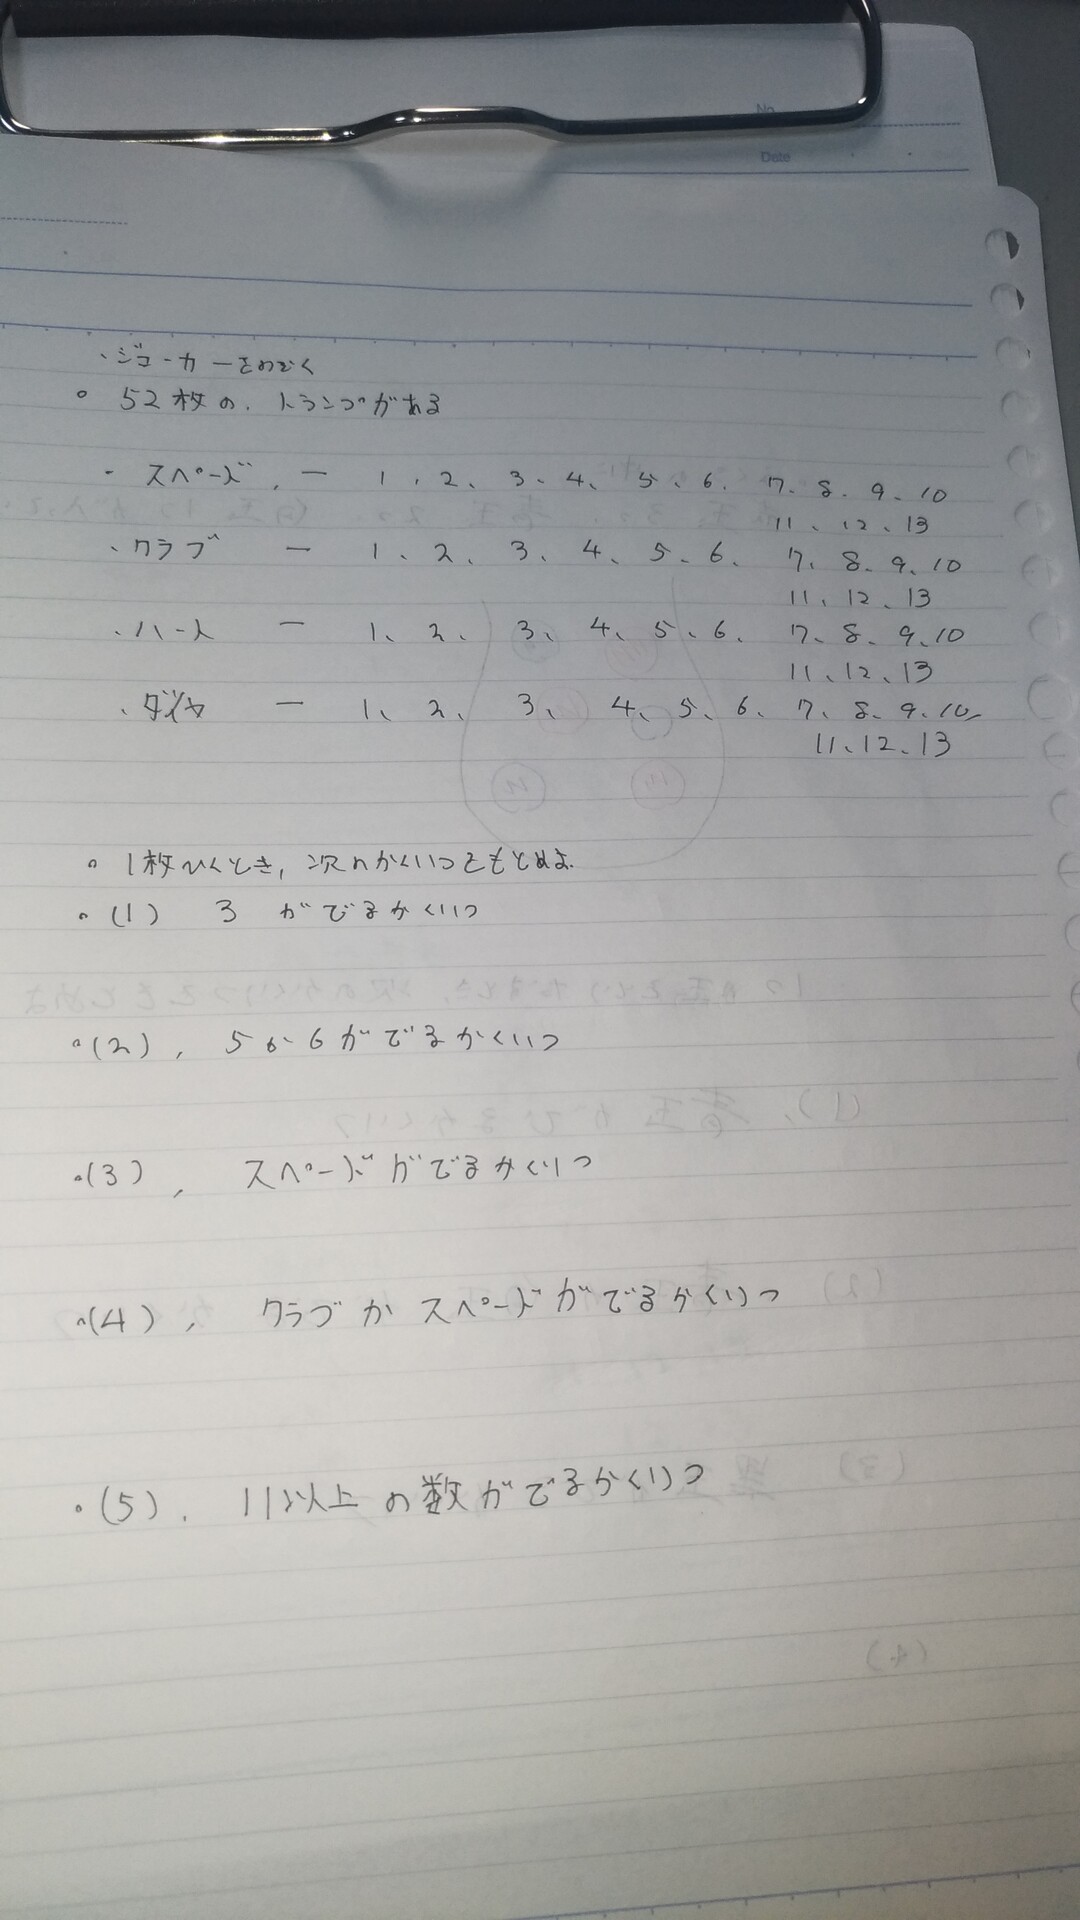 No.
Date
、ジョーカーをのぞく
○ 52枚の、トランプがある
・スペード、ー 1、2、3、4、5、6、7、8、9、10
11、12、13
、クラブ ー 1、2、3、4、5、6、7、8、9、10
11、12、13
、ハート ー 1、2、3、4、5、6、7、8、9、10
11、12、13
、ダイヤ ー 1、2、3、4、5、6、7、8、9、10、
11、12、13
○ 1枚ひくとき、次のかくりつをもとめよ
○(1) 3 がでるかくりつ
○(2)、5か6がでるかくりつ
○(3)、スペードがでるかくりつ
○(4)、クラブかスペードがでるかくりつ
○(5)、11以上の数がでるかくりつ